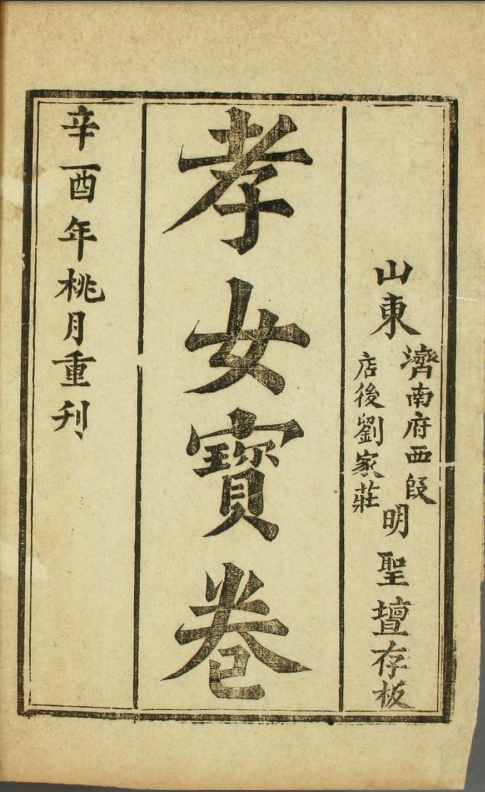 山東
濟南府西叚
店後劉家莊
明聖壇存板
孝女寶卷
辛酉年桃月重刋